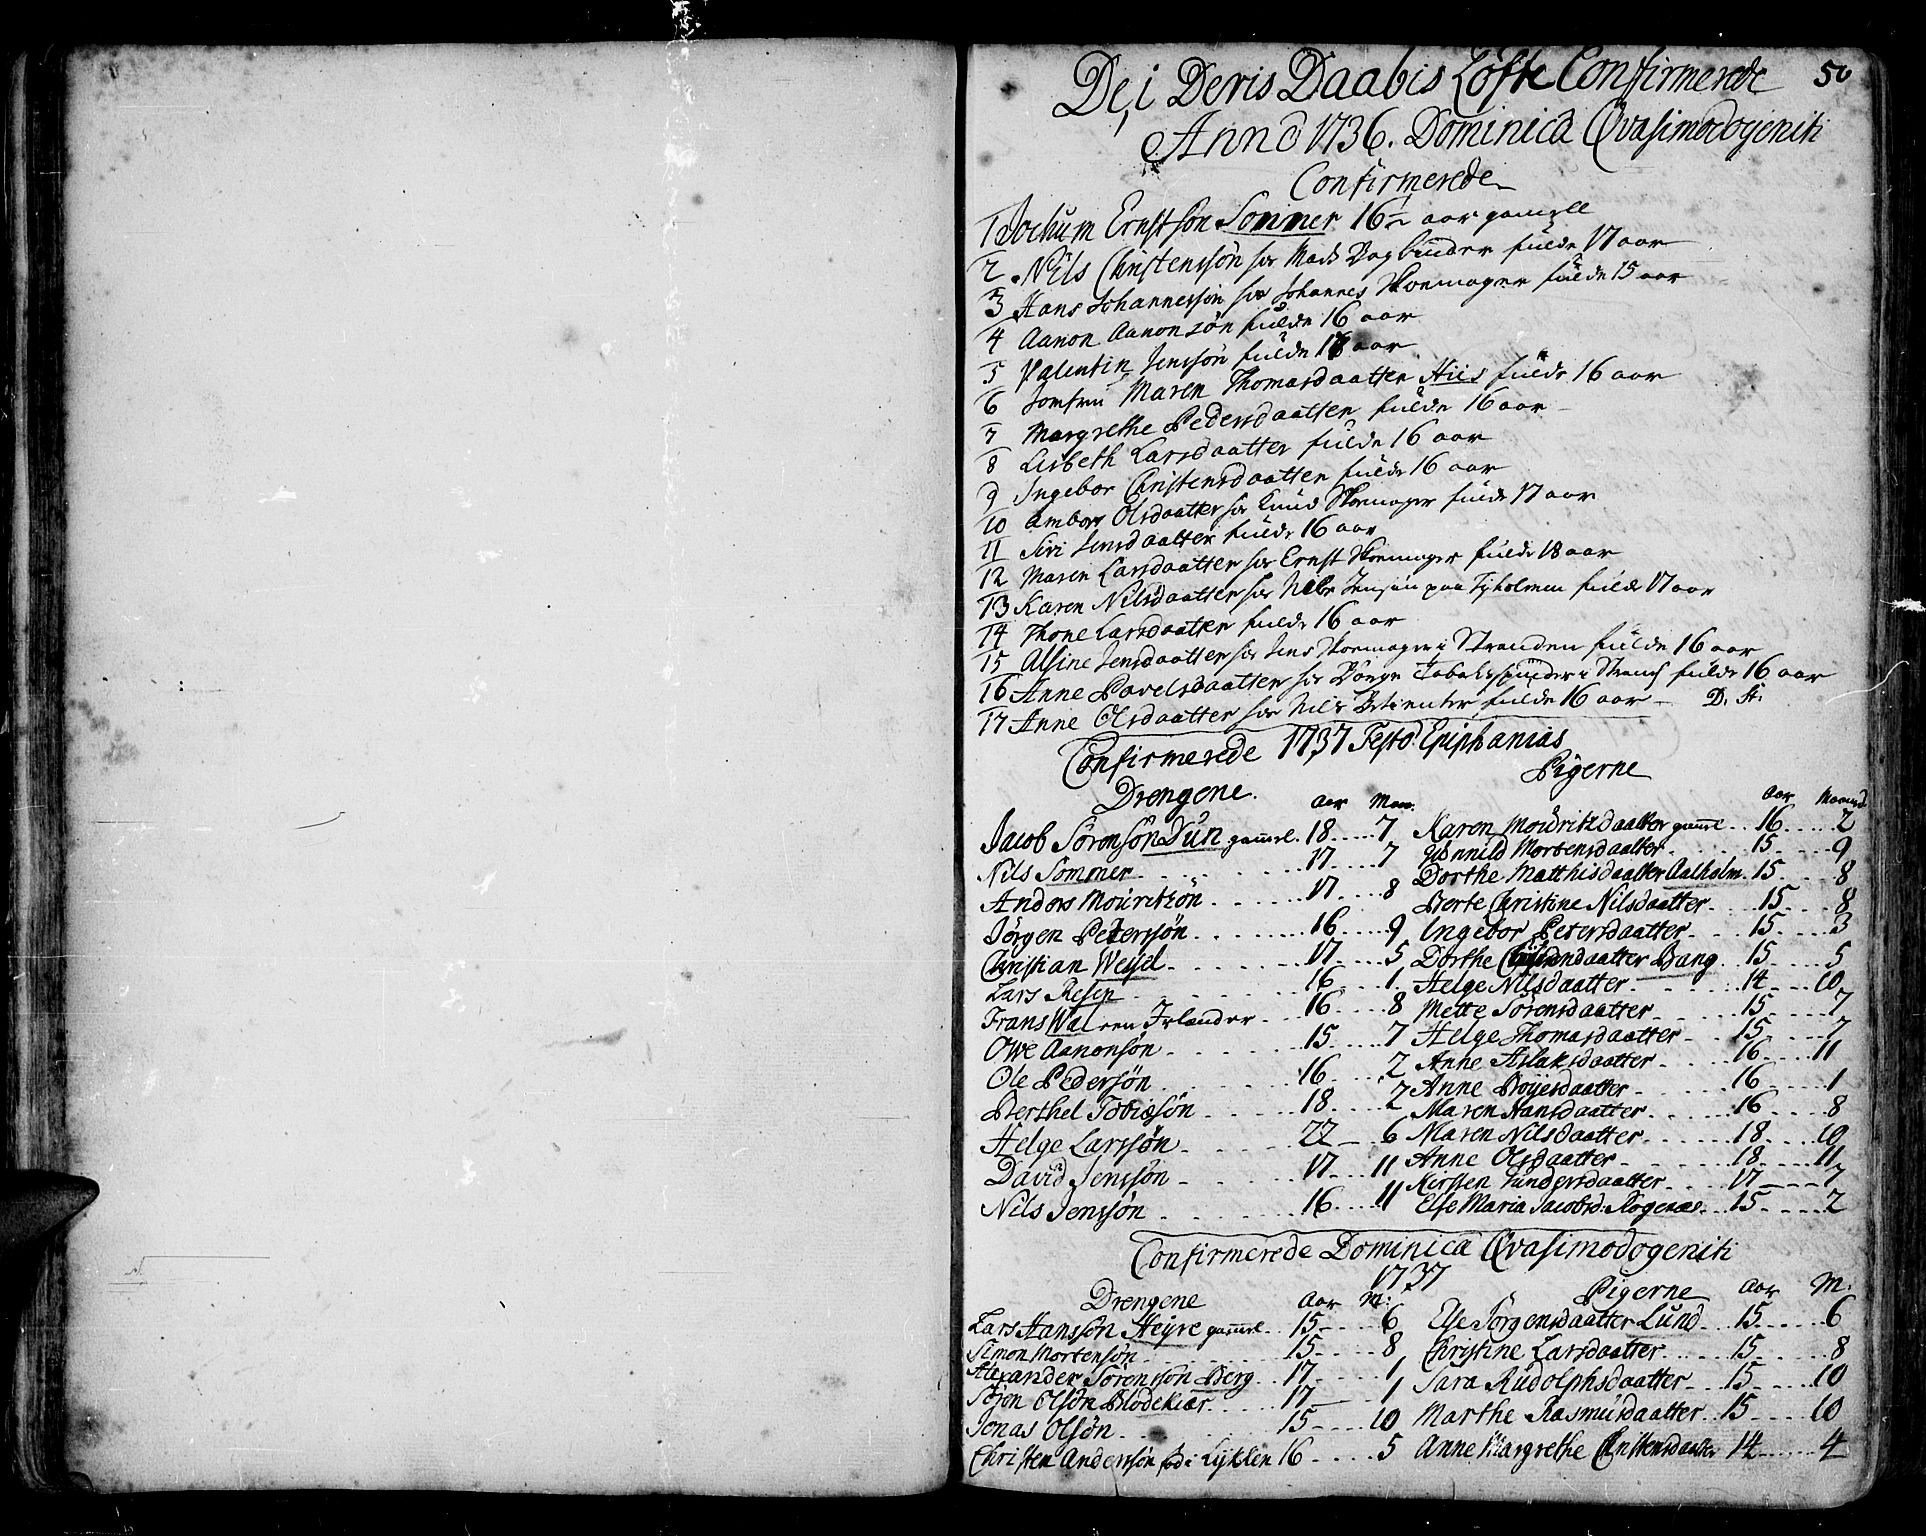 De, i Deris Daabis Löfte Confirmerede 50
Anno 1736. Dominica Qvasimodogeniti
Confirmerede
1 Jochum Ernstsön Sommer 16½ aar gamell
2 Nils Christenssön hos Mads Bogbinder fulde 17 aar
3 Hans Johannessön hos Johannes Skoemager fulde 15 aar
4 Aanon Aanonsön fulde 16 aar
5 Valentin Jenssön fulde 18 aar
6 Jomfru Maren Thomasdaatter Hiis fulde 16 aar
7 Margrethe Pedersdaatter fulde 16 aar
8 Lisbeth Larsdaatter fulde 16 aar
9 Ingebor Christensdaatter fulde 16 aar
10 Ambor Olsdaatter hos Knud Skoemager fulde 17 aar
11 Siri Jensdaatter fulde 16 aar
12 Maren Larsdaatter hos Ernst Skoemager fulde 18 aar
13 Karen Nilsdaatter hos Nils Jensön paa Tyholmen fulde 17 aar
14 Thone Larsdaatter fulde 16 aar
15 Alsine Jensdaatter hos Jens Skoemager i Stranden fulde 16 aar
16 Anne Povelsdaatter hos Börge Tobakspinder i Strand fulde 16 aar
17 Anne Olsdaatter hos Nils fulde 16 aar D. St.
Confirmerede 1737 Festo Epiphanias
Drengene. Aar Maan. Pigerne Aar Maaned
Jacob Sörensön Dun gamel. 18 7 Karen Mouritzdaatter gamel 16 2
Nils Sommer 17 7 Gunnild Mortensdaatter 15 9
Anders Mouritzön 17 8 Dorthe Matthisdaatter Aalholm 15 8
Jörgen Pederssön 16 9 Berte Christine Nilsdaatter 15 8
Christian Weysel 17 5 Ingebor Petersdaatter 15 3
Lars Resen 16 1 Dorthe Bang 15 5
Frans Wal een Irlænder 16 8 Helge Nilsdaatter 14 10
Owe Aanonsön 15 7 Mette Sörensdaatter 15 7
Ole Pedersön 16 2 Helge Thomasdaatter 15 7
Berthel Tobiæsön 18 2 Anne Aslaksdaatter 16 11
Helge Larssön 22 6 Anne Boyesdaatter 16 1
David Jenssön 17 11 Maren Hansdaatter 16 8
Nils Jenssön 16 11 Maren Nilsdaatter 18 10
Anne Olsdaatter 18 11
Kirsten Gundersdaatter 17 7
Else Maria Jacobsd: Rogenæs 15 2
Confirmerede Dominica Qvasimodogeniti
1737
Drengene Aar M: Pigerne Aar M:
Lars Hanssön Heyre gamel 15 6 Else Jörgensdaatter Lund 15 6
Simon Mortensön 15 8 Christine Larsdaatter 15 8
Alexander Sörenssön Berg 17 1 Sara Rudolphsdaatter 15 10
Sören Olsön Blodekier 17 1 Marthe Rasmusdaatter 15 10
Jonas Olsön 15 10 Anne Margrethe Christensdaatter 14 4
Christen Anderssön föd i Lyklen 16 5